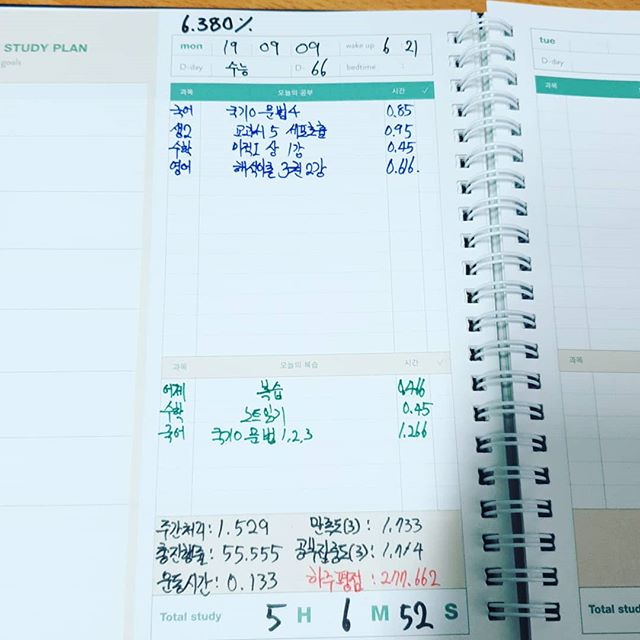 6.380%
STUDY PLAN
goals
mon 19 09 09 wake up 6 21
D-day 수능 D- 66 bedtime :
tue
D-day
과목 오늘의 공부 시간 ✓
국어 국기0 문법 4 0.85
생2 교과서 5 세포호흡 0.95
수학 미적I 상 1강 0.45
영어 해석이론 3권 2강 0.66.
과목 오늘의 복습 시간 ✓
어제 복습 0.466
수학 노트읽기 0.45
국어 국기0 문법 1,2,3 1.266
과목
주간처리: 1.529 만족도(3): 1.733
총진행율: 55.555 공부집중도(3):
운동시간: 0.133 하루평점: 277.662
Total study 5 H 6 M 52 S
Total study